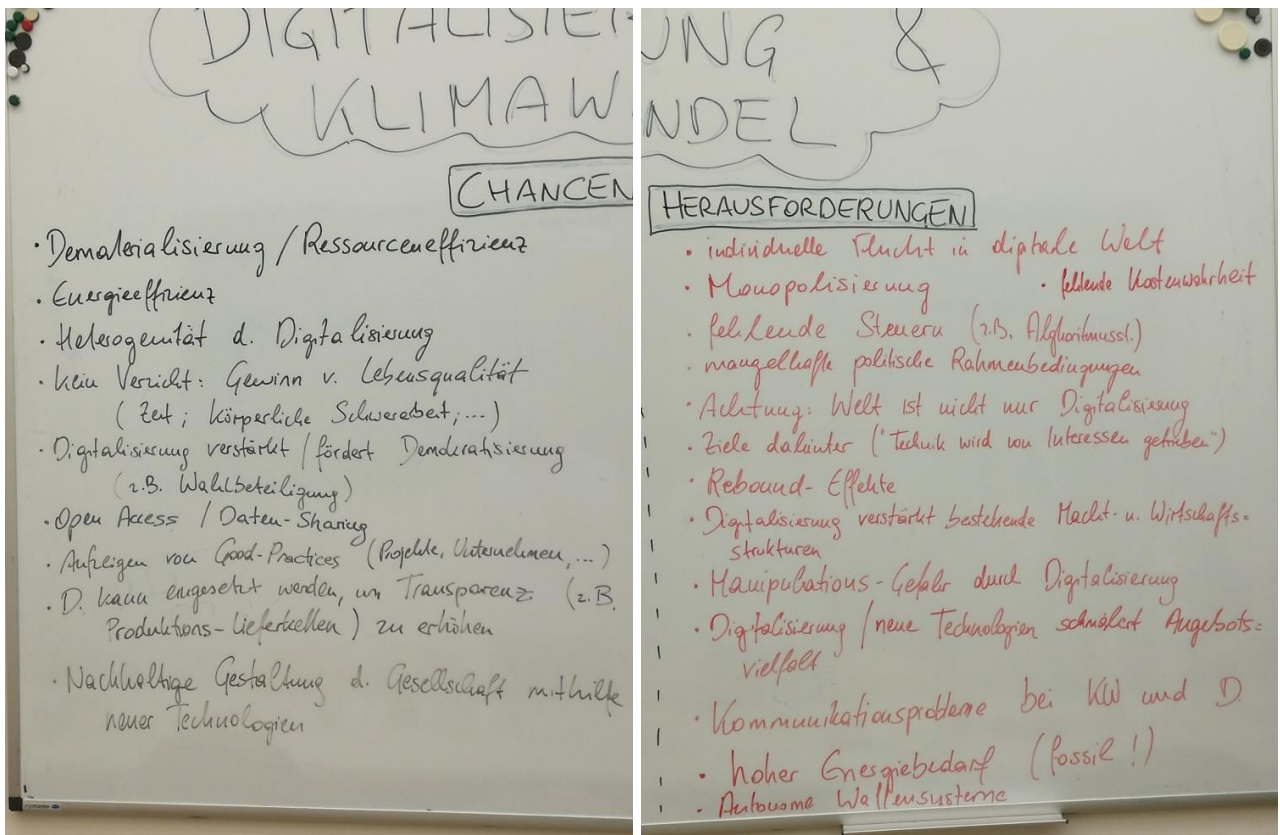 DIGITALISIERUNG &
KLIMAWANDEL
CHANCEN
· Dematerialisierung / Ressourceneffizienz
· Energieeffizienz
· Heterogenität d. Digitalisierung
· kein Verzicht: Gewinn v. Lebensqualität
( Zeit ; körperliche Schwerarbeit ; ... )
· Digitalisierung verstärkt / fördert Demokratisierung
(z.B. Wahlbeteiligung)
· Open Access / Daten-Sharing
· Aufzeigen von Good-Practices (Projekte, Unternehmen, ...)
· D. kann eingesetzt werden, um Transparenz (z.B.
Produktions-Lieferketten) zu erhöhen
· Nachhaltige Gestaltung d. Gesellschaft mithilfe
neuer Technologien
HERAUSFORDERUNGEN
· individuelle Flucht in digitale Welt
· Monopolisierung · fehlende Kostenwahrheit
· fehlende Steuern (z.B. Alghoritmusst.)
· mangelhafte politische Rahmenbedingungen
· Achtung: Welt ist nicht nur Digitalisierung
· Ziele dahinter ("Technik wird von Interessen getrieben")
· Rebound-Effekte
· Digitalisierung verstärkt bestehende Macht- u. Wirtschafts=
strukturen
· Manipulations-Gefahr durch Digitalisierung
· Digitalisierung / neue Technologien schmälert Angebots=
vielfalt
· Kommunikationsprobleme bei KW und D.
· hoher Energiebedarf (fossil!)
· Autonome Waffensysteme